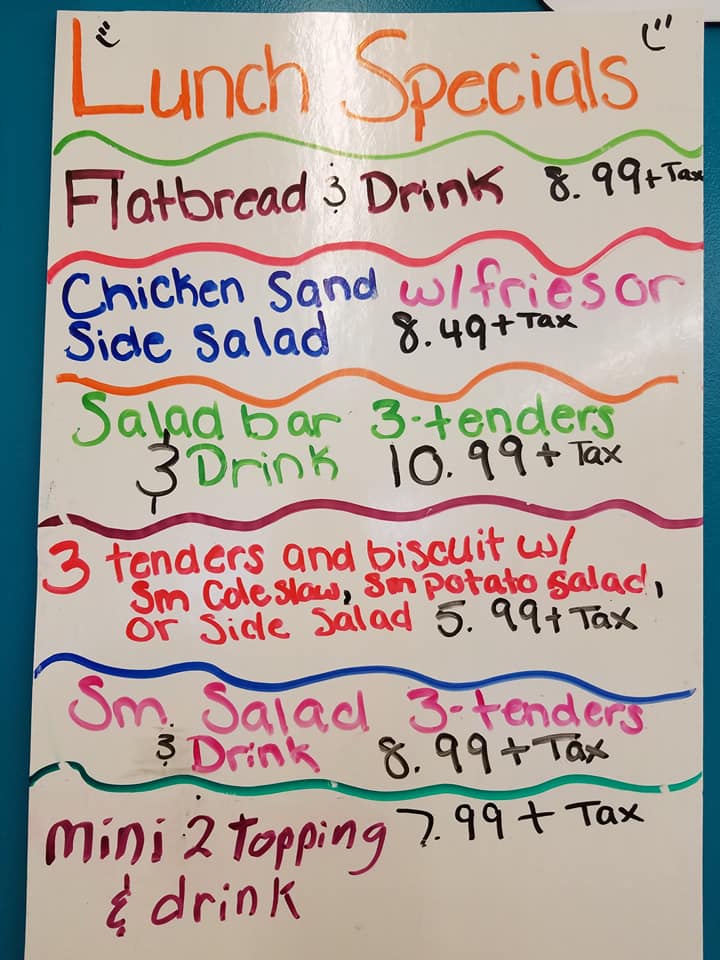 Lunch Specials
Flatbread & Drink 8.99+Tax
Chicken Sand w/fries or
Side Salad 8.49+Tax
Salad bar 3-tenders
& Drink 10.99+Tax
3 tenders and biscuit w/
Sm Cole slaw, Sm potato salad,
or Side Salad 5.99+Tax
Sm. Salad 3-tenders
& Drink 8.99+Tax
Mini 2 topping 7.99+Tax
& drink